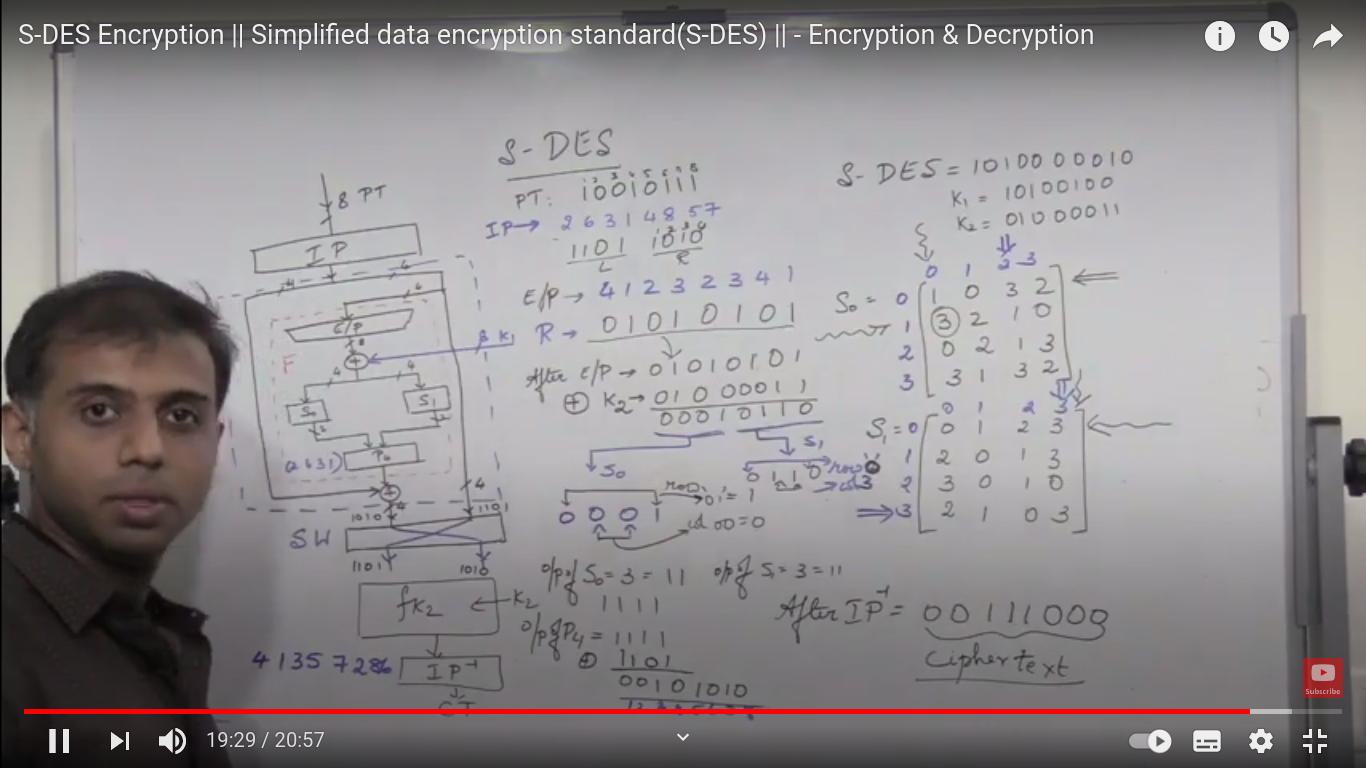 S-DES Encryption || Simplified data encryption standard(S-DES) || - Encryption & Decryption
S-DES
8 PT
IP
4
4
4
E/P
8
F
8 K1
4
4
S0
S1
2
2
(2431)
P4
4
4
1010
1101
SW
1101
1010
fK2
K2
4 1 3 5 7 2 8 6
IP-1
CT
1 2 3 4 5 6 7 8
PT: 10010111
IP→ 2 6 3 1 4 8 5 7
1 2 3 4
1101 1010
L R
E/P → 4 1 2 3 2 3 4 1
R → 0 1 0 1 0 1 0 1
After E/P → 01010101
⊕ K2 → 01000011
00010110
S0
S1
0 1 1 0
row 0
col 3
0 0 0 1
row 01 = 1
col 00 = 0
o/p of S0 = 3 = 11
o/p of S1 = 3 = 11
1111
o/p of P4 = 1111
⊕ 1101
00101010
S-DES = 1010000010
K1 = 10100100
K2 = 01000011
0 1 2 3
S0 = 0 1 0 3 2
1 3 2 1 0
2 0 2 1 3
3 3 1 3 2
0 1 2 3
S1 = 0 0 1 2 3
1 2 0 1 3
2 3 0 1 0
3 2 1 0 3
After IP-1 = 00111000
Ciphertext
Subscribe
19:29 / 20:57